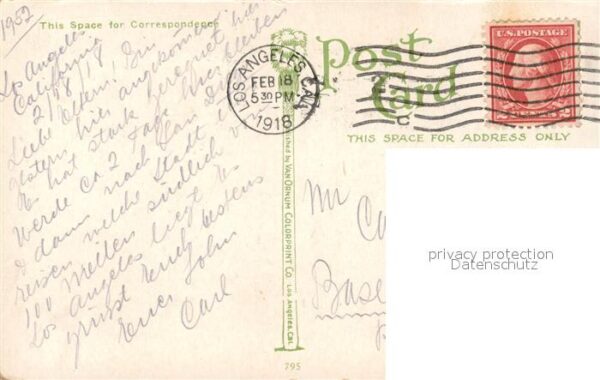 1952
This Space for Correspondence
Los Angeles
California
2/18/18
Liebe Eltern! Bin
gestern hier angekommen hier
& hat stark geregnet
werde ca 2 Tage hier bleiben
& dann nach San Diego
welche Stadt
reisen südlich v
100 Meilen
Los Angeles liegt. Es
grüsst Euch bestens
Euer Sohn
Carl
LOS ANGELES, CAL.
FEB 18
5 30 PM
1918
Post
Card
U.S. POSTAGE
THIS SPACE FOR ADDRESS ONLY
Published by VAN ORNUM COLORPRINT CO. LOS ANGELES, CAL.
Mr Ca
Base
privacy protection
Datenschutz
795